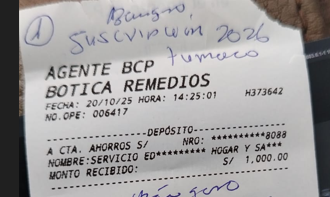 ①
SUSCRIPCIÓN 2026
Tumaco
AGENTE BCP
BOTICA REMEDIOS
FECHA: 20/10/25 HORA: 14:25:01 H373642
NO.OPE: 006417
DEPÓSITO
A CTA. AHORROS S/ NRO: **********8088
NOMBRE:SERVICIO ED********* HOGAR Y SA***
MONTO RECIBIDO: S/ 1,000.00